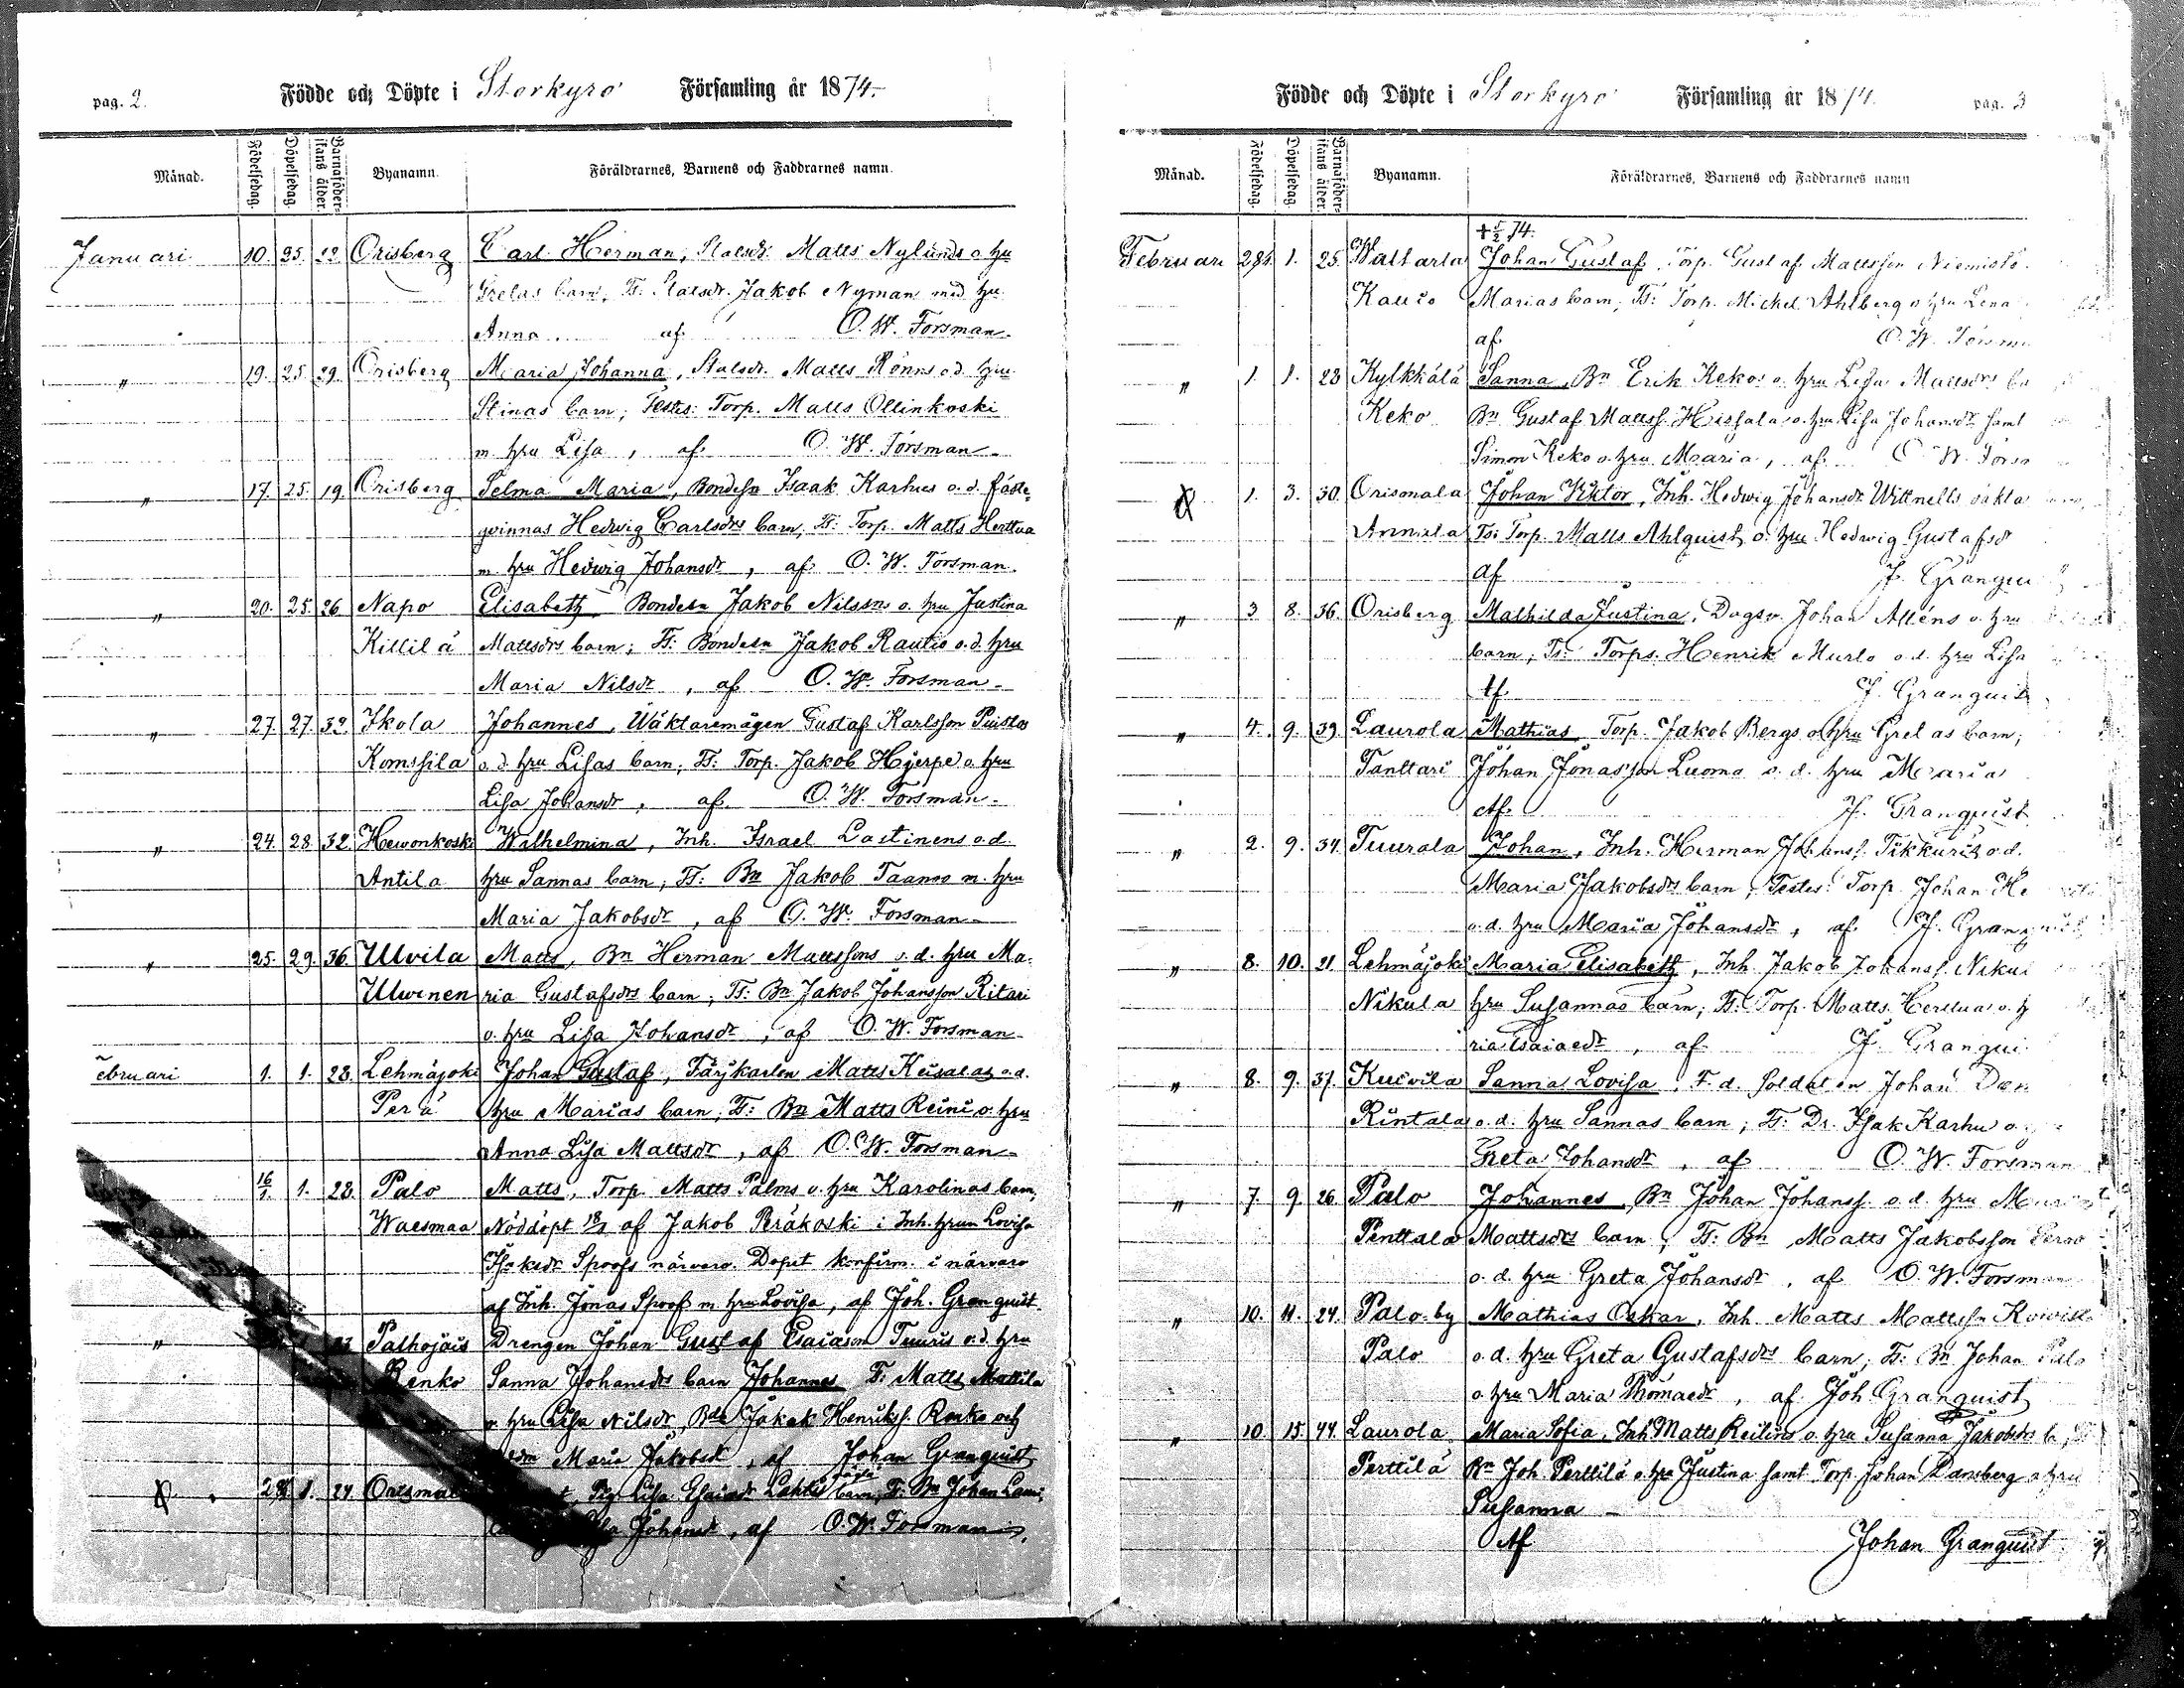 pag. 2.
Födde och Döpte i Storkyro Församling år 1874.
Månad. Födelsedag. Döpelsedag. Barnaföderskans ålder. Byanamn. Föräldrarnes, Barnens och Faddrarnes namn.
Januari 10. 25. 22 Orisberg Carl Herman, Statsdr. Matts Nylunds o. hru
Gretas barn, Ts: Statsdr. Jakob Nyman med hu
Anna af O. W. Forsman.
" 19. 25 29. Orisberg Maria Johanna, Statsdr. Matts Rönns o.d. hru
Stinas barn; Testes: Torp. Matts Ollinkoski
m hru Lisa, af O. W. Forsman.
" 17. 25. 19 Orisberg Selma Maria, Bondesn Isaak Karhus o. d. fäste
qvinnas Hedwig Carlsdrs barn, Ts: Torp. Matts Herttua
m. hru Hedwig Johansdr, af O. W. Forsman.
" 20. 25. 26 Napo Elisabeth, Bondesn Jakob Nilssns o. hru Justina
Killilä Mattsdrs barn; Ts: Bondesn Jakob Rautio o.d. hru
Maria Nilsdr, af O. W. Forsman.
" 27. 27. 32. Ikola Johannes, Wäktaremågen Gustaf Karlsson Puistos
Komsila o. d. hru Lisas barn; Ts: Torp. Jakob Hjerpe o. hru
Lisa Johansdr, af O. W. Forsman.
" 24. 28. 32. Hewonkoski Wilhelmina, Inh. Israel Lastinens o.d.
Antila hru Sannas barn; Ts: Bn Jakob Taanso m. hru
Maria Jakobsdr, af O. W. Forsman.
" 25. 29. 36. Ulvila Matts, Bn Herman Mattssons o. d. hru Ma-
Ulvinen ria Gustafsdrs barn; Ts: Bn Jakob Johansson Ritari
o. hru Lisa Johansdr, af O. W. Forsman
ebruari 1. 1. 28. Lehmäjoki Johan Gustaf, Färjkarlen Matts Keisalas o.d.
Perä hru Marias barn; Ts: Bn Matts Reini o. hru
Anna Lisa Mattsdr, af O. W. Forsman.
16/1. 1. 28. Palo Matts, Torp. Matts Palms o. hru Karolinas barn,
Waismaa Nöddöpt 18/1 af Jakob Peräkoski i Inh. hrun Lovisa
Isaksdr Spoofs närvaro. Dopet konfirm. i närvaro
af Inh. Jonas Spoof m hru Lovisa, af Joh. Granquist.
" Palhojais Drengen Johan Gustaf Esaiason Tuuris o.d. hru
Renko Sanna Johansdrs barn Johannes Ts: Matts Mattila
o. hru Lisa Nilsdr, Bde Jakob Henrikss. Renko och
Maria Jakobsdr, af Johan Granquist
28/1 1. 24. Orismala Pig. Lisa Esaiasdr Lahtis oägta barn; Ts: Bn Johan
Johansdr, af O. W. Forsman.
Födde och Döpte i Storkyro Församling år 1874. pag. 3
Månad. Födelsedag. Döpelsedag. Barnaföderskans ålder. Byanamn. Föräldrarnes, Barnens och Faddrarnes namn
+ 5/2 74.
Februari 28/1. 1. 25. Waltarla Johan Gustaf, Torp. Gustaf Mattsson Niemistö
Kauco Marias barn; Ts: Torp. Mickel Ahlberg o hru Lena
af O. W. Forsm
" 1. 1. 23 Kylkkälä Sanna, Bn Erik Kekos o. hru Lisas Mattsdrs ba
Keko Bn Gustaf Matss. Hissala o. hru Lisa Johansdr samt
Simon Keko o. hru Maria, af O W. Forsm
1. 3. 30. Orismala Johan Viktor, Inh. Hedwig Johansdr Wittnells oäkta
Annila Ts: Torp. Matts Ahlquist o. hru Hedwig Gustafsdr
af J. Granqui
" 3 8. 36. Orisberg Mathilda Justina, Dagsv. Johan Alléns o. hru
barn; Ts: Torps. Henrik Murto o.d. hru Lisa
Af J. Granquist
" 4. 9. 39. Laurola Mathias, Torp. Jakob Bergs o hru Gretas barn;
Tanttari Johan Jonasson Luoma o. d. hru Maria
Af. J. Granquist
" 2. 9. 34. Tuurala Johan, Inh. Herman Johanss. Tikkuris o.d.
Maria Jakobsdrs barn; Testes: Torp. Johan He
o. d. hru Maria Johansdr, af J. Granquist
" 8. 10. 21 Lehmäjoki Maria Elisabeth, Inh. Jakob Johanss. Niku
Nikula hru Susannas barn; Ts: Torp. Matts Herttua o. h
ria Esaiaedr, af J. Granqui
" 8. 9. 37. Kuivila Sanna Lovisa, F. d. Soldaten Johan
Rintala o. d. hru Sannas barn; Ts: Dr. Isak Karhu o.
Greta Johansdr, af O. W. Forsman
" 7. 9. 26. Palo Johannes, Bn Johan Johanss. o. d. hru Maria
Penttala Mattsdrs barn; Ts: Bn Matts Jakobsson
o. d. hru Greta Johansdr, af O. W. Forsman
" 10. 11. 24. Palo-by Mathias Oskar, Inh. Matts Mattssn Koivist
Palo o.d. hru Greta Gustafsdrs barn; Ts: Bn Johan Palo
o hru Maria Thomaedr, af Joh Granquist
" 10. 15. 44. Laurola Maria Sofia, Inh Matts Reilins o. hru Susanna Jakobsdrs ba
Perttilä Bn Joh. Perttilä o hru Justina samt Torp. Johan Dansberg o hru
Susanna
Af Johan Granquist